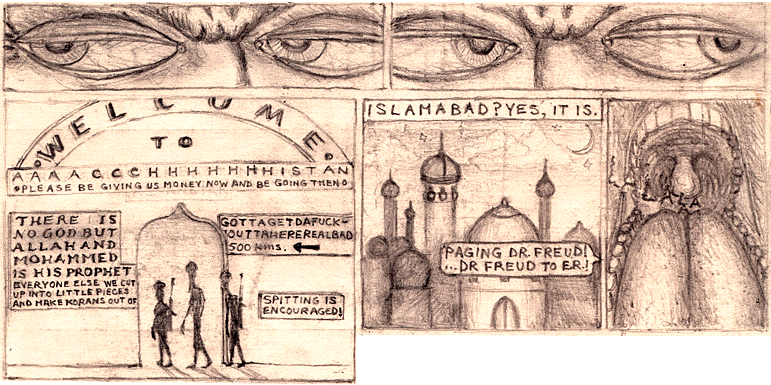 WELLCUME
TO
AAAACCCHHHHHHHHISTAN
•PLEASE BE GIVING US MONEY NOW AND BE GOING THEN•
THERE IS
NO GOD BUT
ALLAH AND
MOHAMMED
IS HIS PROPHET
EVERYONE ELSE WE CUT
UP INTO LITTLE PIECES
AND MAKE KORANS OUT OF
GOTTAGETDAFUCK-
OUTTAHEREREALBAD
500 kms.
SPITTING IS
ENCOURAGED!
ISLAMABAD? YES, IT IS.
PAGING DR. FREUD!
...DR FREUD TO ER.!
LALALALA